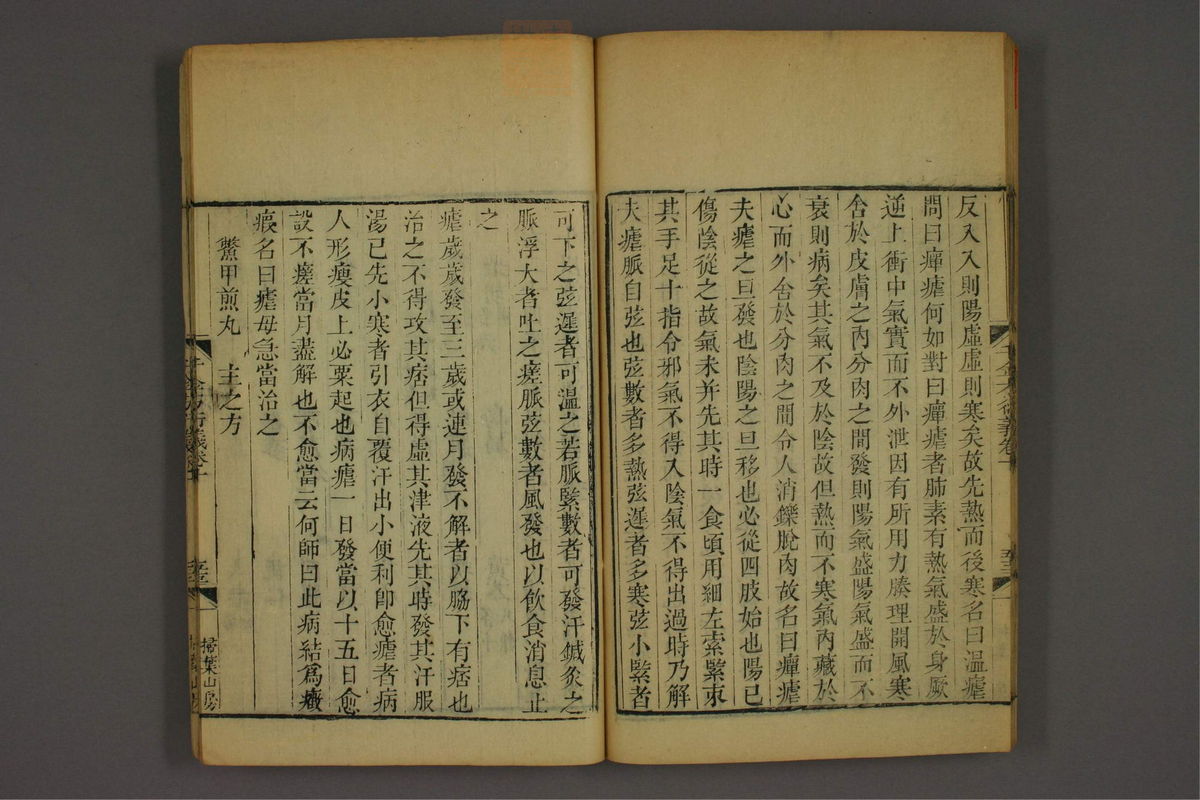 反入入則陽虛虛則寒矣故先熱而後寒名曰温瘧
問曰癉瘧何如對曰癉瘧者肺素有熱氣盛於身厥
逆上衝中氣實而不外泄因有所用力腠理開風寒
舍於皮膚之內分肉之間發則陽氣盛陽氣盛而不
衰則病矣其氣不及於陰故但熱而不寒氣內藏於
心而外舍於分肉之間令人消鑠脫肉故名曰癉瘧
夫瘧之且發也陰陽之且移也必從四肢始也陽已
傷陰從之故氣未并先其時一食頃用細左索緊束
其手足十指令邪氣不得入陰氣不得出過時乃解
夫瘧脈自弦也弦數者多熱弦遲者多寒弦小緊者
可下之弦遲者可温之若脈緊數者可發汗鍼灸之
脈浮大者吐之瘥脈弦數者風發也以飲食消息止
之
瘧歲歲發至三歲或連月發不解者以脇下有痞也
治之不得攻其痞但得虛其津液先其時發其汗服
湯已先小寒者引衣自覆汗出小便利卽愈瘧者病
人形瘦皮上必粟起也病瘧一日發當以十五日愈
設不瘥當月盡解也不愈當云何師曰此病結爲癥
瘕名曰瘧母急當治之
鱉甲煎丸　主之方
掃葉山房